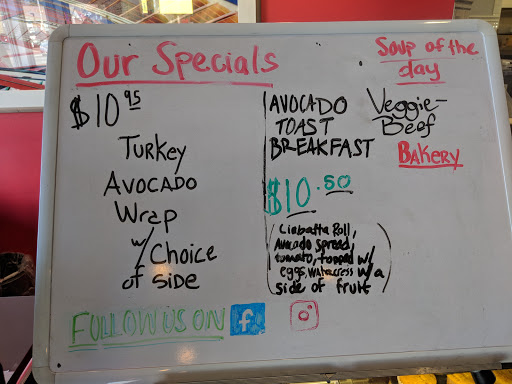 Our Specials
$10.95
Turkey
Avocado
Wrap
w/ Choice
of side
AVOCADO
TOAST
BREAKFAST
$10.50
(Ciabatta Roll,
Avocado Spread,
tomato, topped w/
eggs, watercress w/ a
side of fruit)
Soup of the
day
Veggie-
Beef
Bakery
FOLLOW US ON f